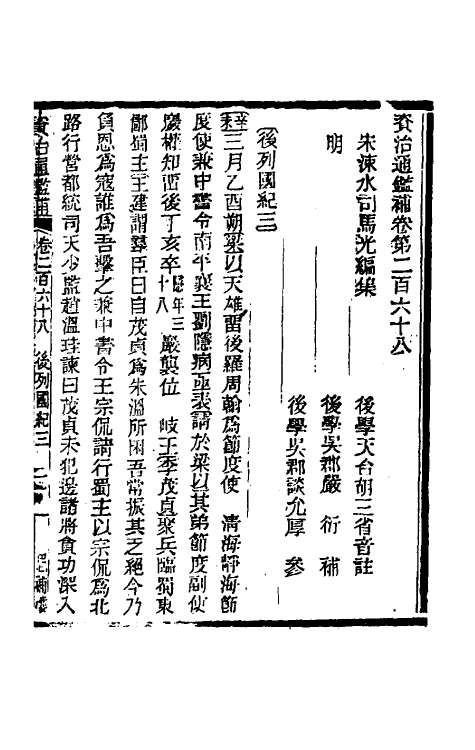 資治通鑑補卷第二百六十八
朱涑水司馬光編集 後學天台胡三省音註
明 後學吳郡嚴衍補
後學吳郡談允厚參
後列國紀三
辛未三月乙酉朔梁以天雄留後羅周翰爲節度使 清海靜海節
度使兼中書令南平襄王劉隱病亟表請於梁以其弟節度副使
巖權知留後丁亥卒隱年三十八巖襲位 岐王李茂貞聚兵臨蜀東
鄙蜀主王建謂羣臣曰自茂貞爲朱溫所困吾常振其乏絕今乃
負恩爲寇誰爲吾擊之兼中書令王宗侃請行蜀主以宗侃爲北
路行營都統司天少監趙溫珪諫曰茂貞未犯邊諸將貪功深入
資治通鑑補 卷二百六十八 後列國紀三 一